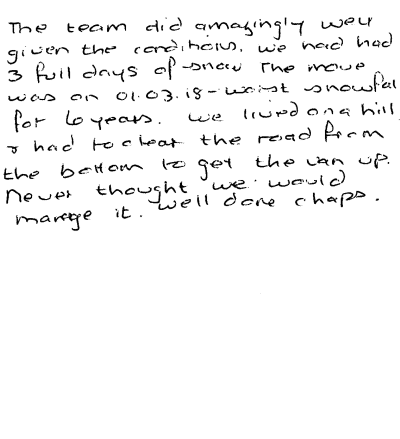 The team did amazingly well
given the conditions. We had had
3 full days of snow The move
was on 01.03.18 - worst snowfall
for 6 years. We lived on a hill
& had to clear the road from
the bottom to get the van up.
Never thought we would
manage it. Well done chaps.